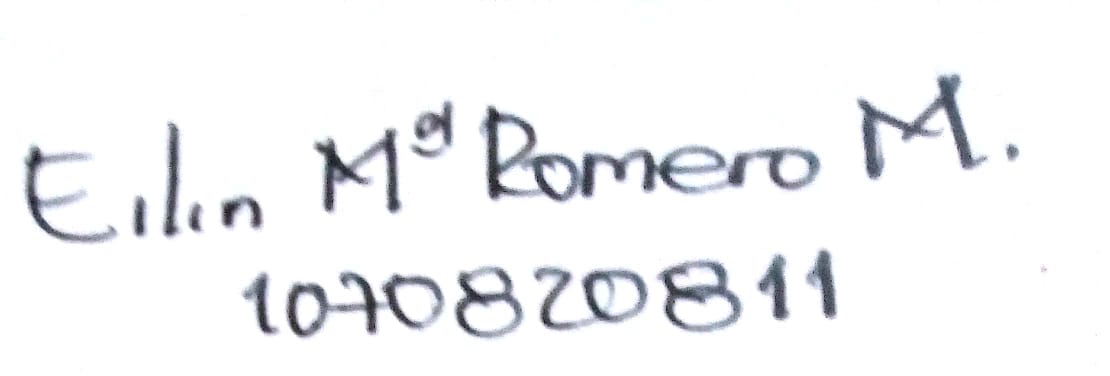 Eilin Mª Romero M.
1070820811